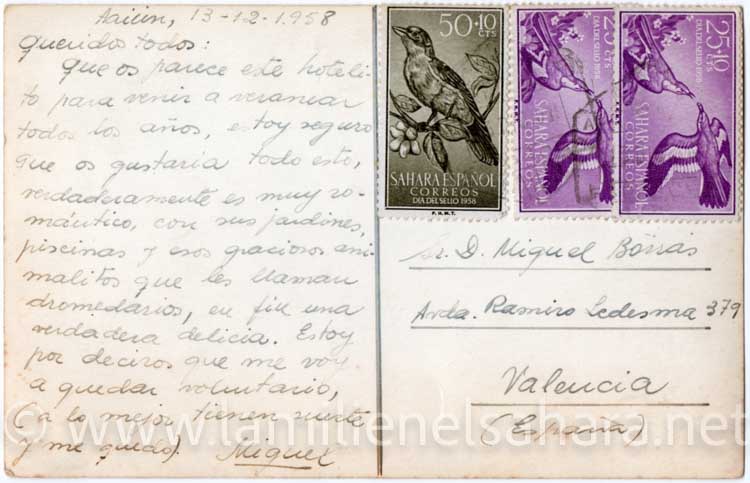 Aaiún, 13-12-1958
Queridos todos:
Que os parece este hoteli-
to para venir a veranear
todos los años, estoy seguro
que os gustaria todo esto,
verdaderamente es muy ro-
mántico, con sus jardines,
piscinas y esos graciosos ani-
malitos que les llaman
dromedarios, en fin una
verdadera delicia. Estoy
por deciros que me voy
a quedar voluntario,
(a lo mejor tienen suerte
y me quedo). Miguel
50+10
CTS
SAHARA ESPAÑOL
CORREOS
DIA DEL SELLO 1958
F.N.M.T.
25+10
CTS
DIA DEL SELLO 1958
SAHARA ESPAÑOL
CORREOS
25+10
CTS
DIA DEL SELLO 1958
SAHARA ESPAÑOL
CORREOS
Sr. D. Miguel Borrás
Avda. Ramiro Ledesma 379
Valencia
(España)
© www.lamilienelsahara.net